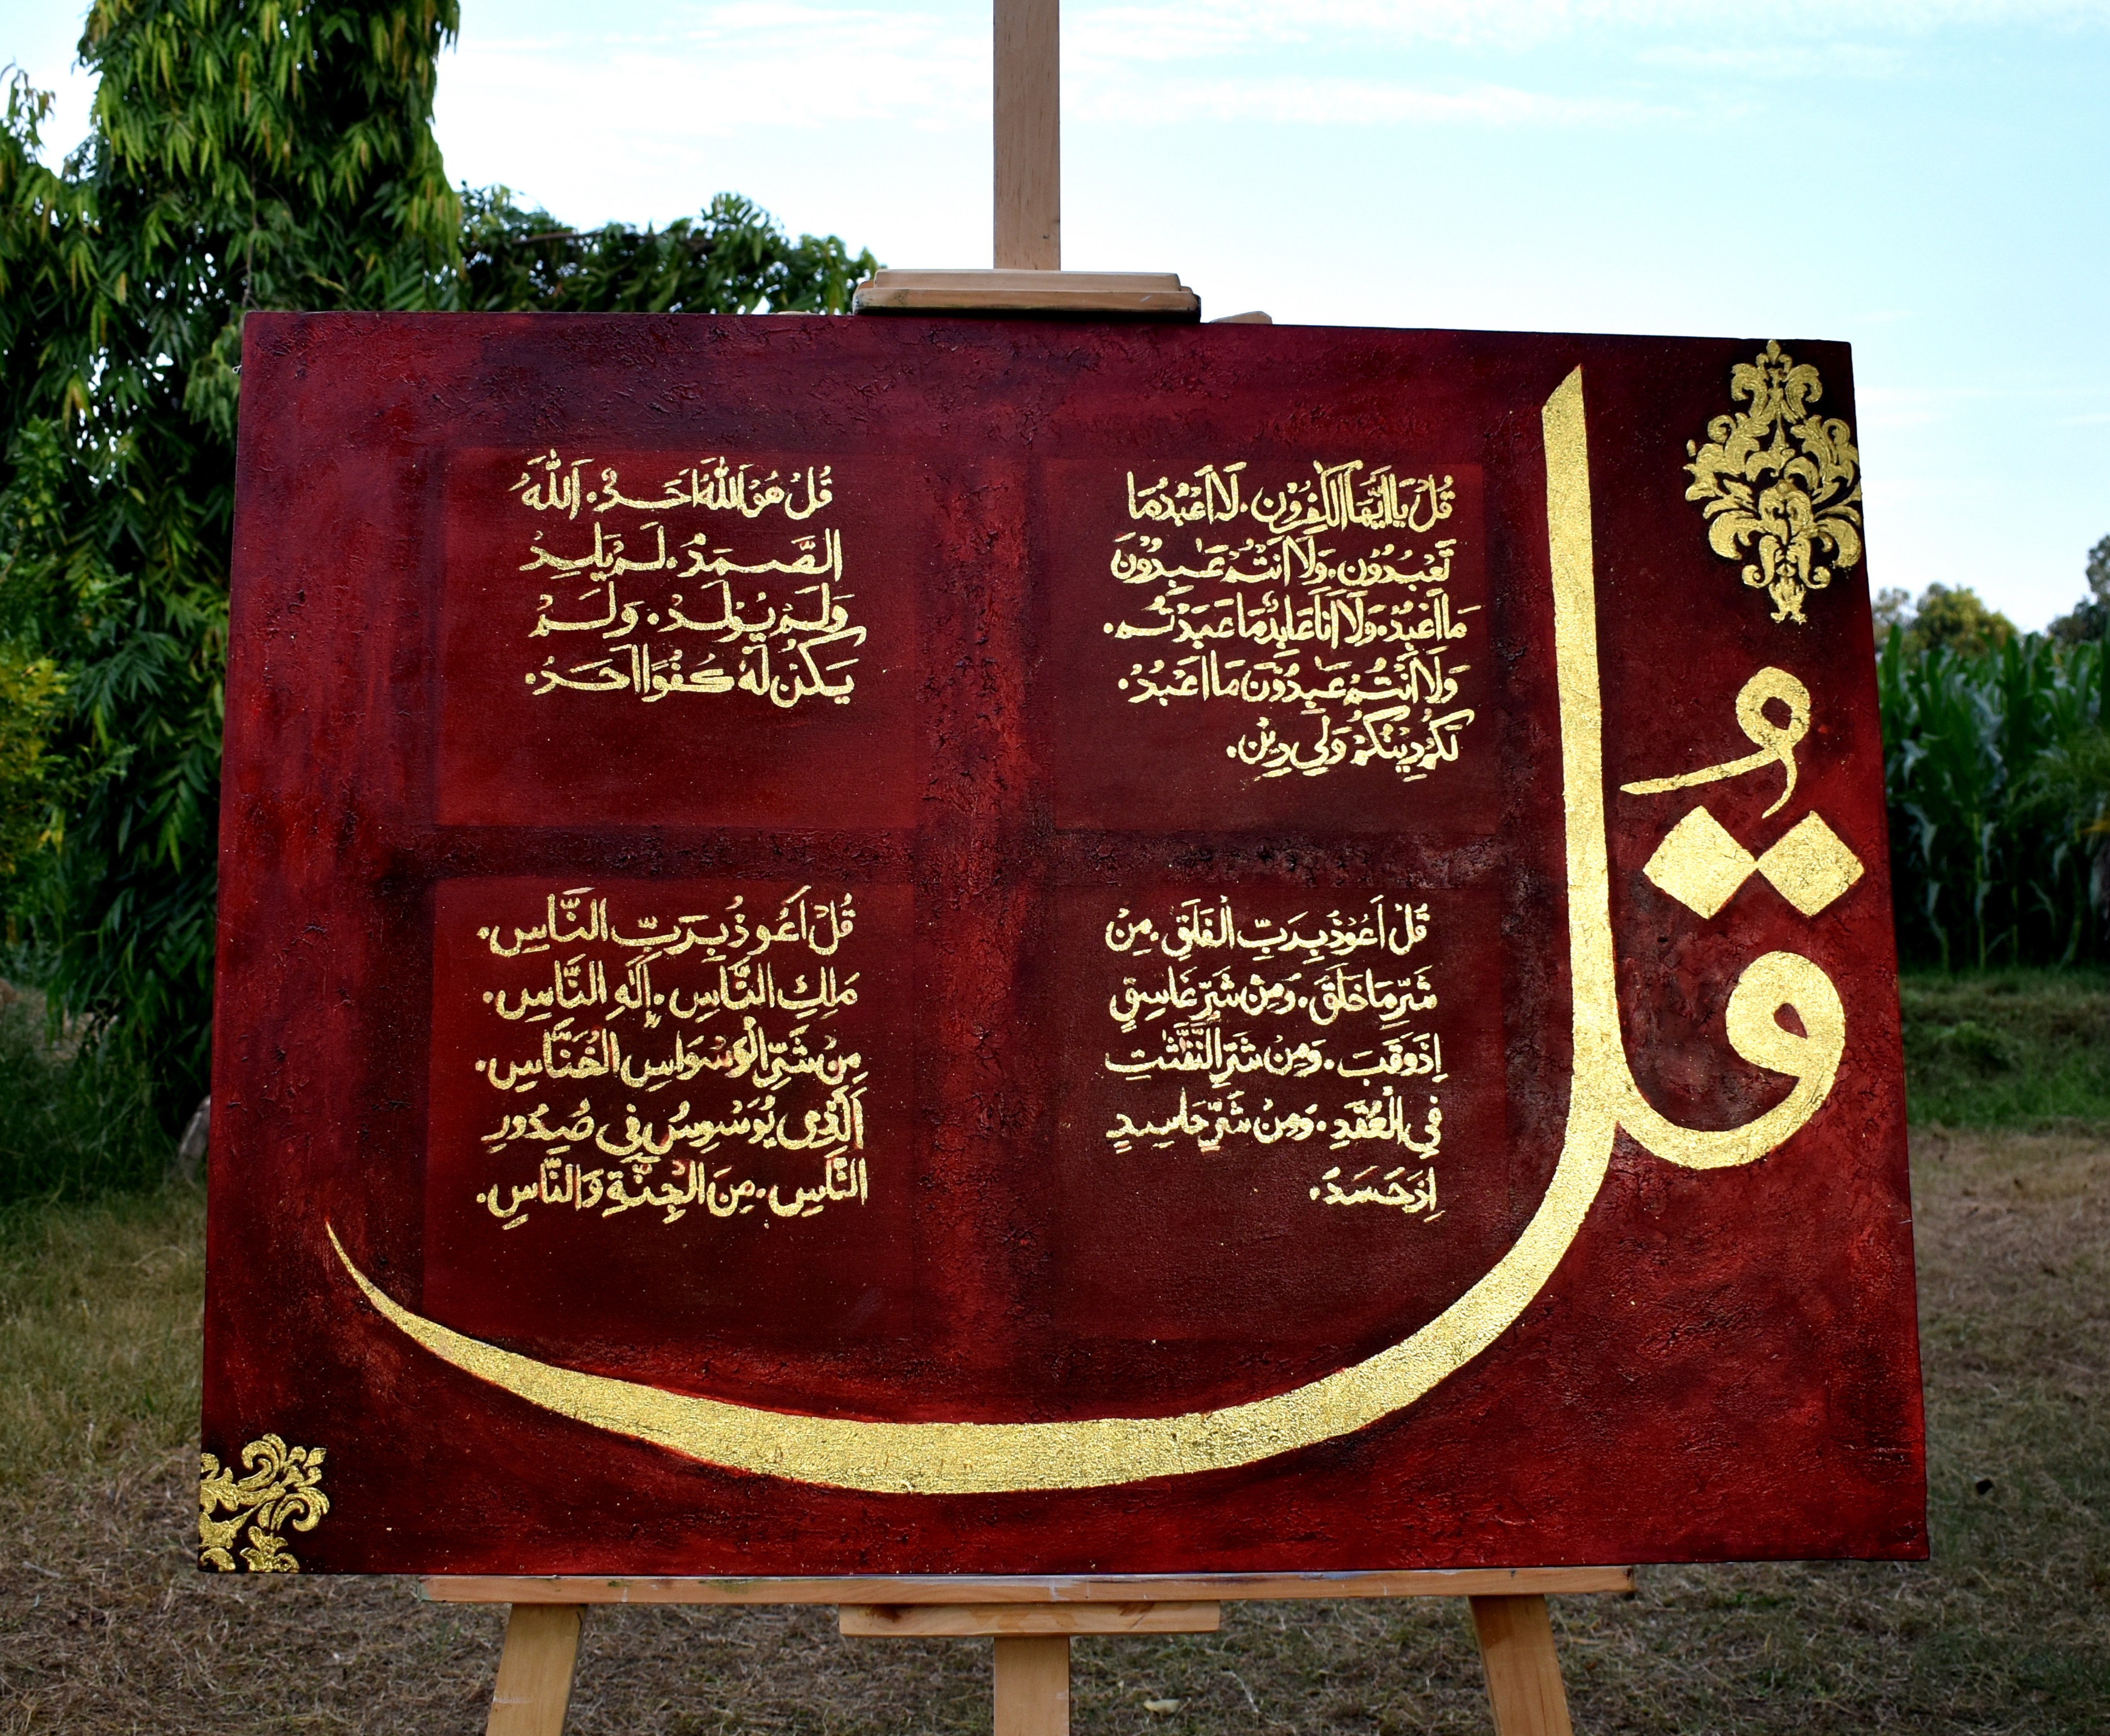 قُلْ
قُلْ يَا اَيُّهَا الْكٰفِرُوْنَ . لَا اَعْبُدُ مَا
تَعْبُدُوْنَ . وَلَا اَنْتُمْ عٰبِدُوْنَ
مَا اَعْبُدُ . وَلَا اَنَا عَابِدٌ مَا عَبَدْتُّمْ .
وَلَا اَنْتُمْ عٰبِدُوْنَ مَا اَعْبُدُ .
لَكُمْ دِيْنُكُمْ وَلِيَ دِيْنِ .
قُلْ هُوَ اللّٰهُ اَحَدٌ . اَللّٰهُ
الصَّمَدُ . لَمْ يَلِدْ
وَلَمْ يُوْلَدْ . وَلَمْ
يَكُنْ لَّهٗ كُفُوًا اَحَدٌ .
قُلْ اَعُوْذُ بِرَبِّ الْفَلَقِ . مِنْ
شَرِّ مَا خَلَقَ . وَمِنْ شَرِّ غَاسِقٍ
اِذَ وَقَبَ . وَمِنْ شَرِّ النَّفّٰثٰتِ
فِي الْعُقَدِ . وَمِنْ شَرِّ حَاسِدٍ
اِذَ حَسَدَ .
قُلْ اَعُوذُ بِرَبِّ النَّاسِ .
مَلِكِ النَّاسِ . اِلٰهِ النَّاسِ .
مِنْ شَرِّ الْوَسْوَاسِ الْخَنَّاسِ .
الَّذِى يُوَسْوِسُ فِي صُدُورِ
النَّاسِ . مِنَ الْجِنَّةِ وَالنَّاسِ .